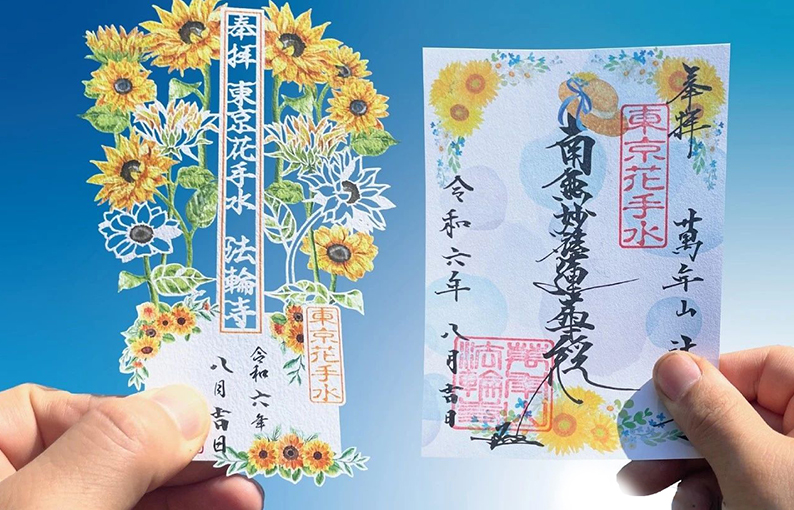 奉拝 東京花手水 法輪寺
東京花手水
令和六年
八月吉日
奉拝
東京花手水
萬年山 法
南無妙法蓮華経
令和六年 八月吉日